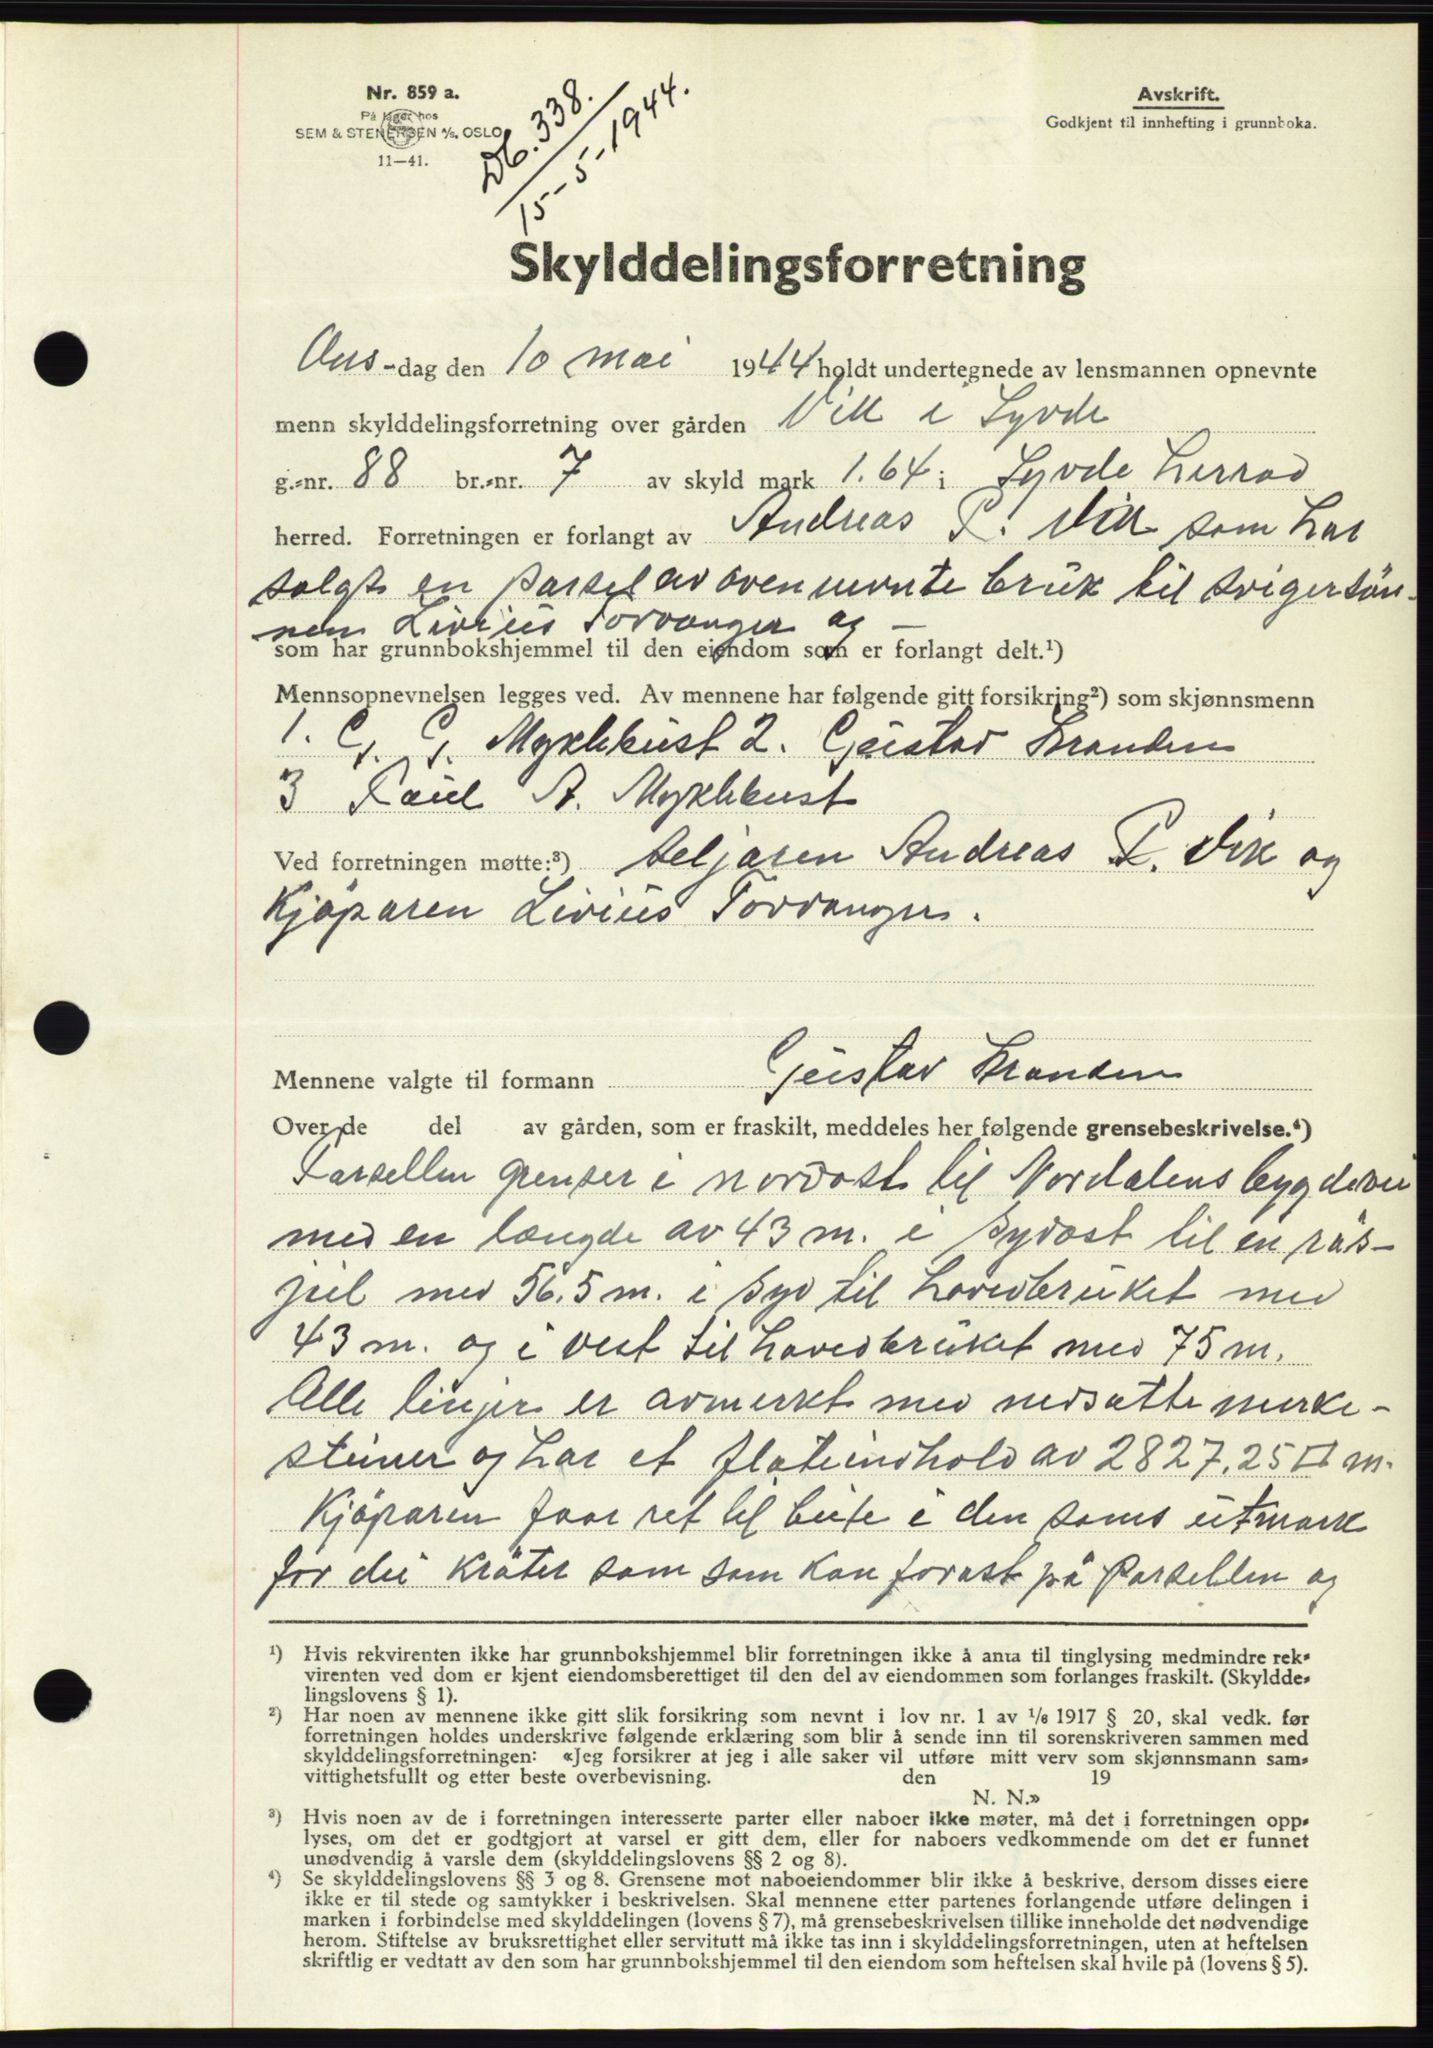 Nr. 859 a.
På lager hos
SEM & STENERSEN A/S, OSLO
11—41.
Db. 338.
15-5-1944.
Avskrift.
Godkjent til innhefting i grunnboka.
Skylddelingsforretning
Ons-dag den 10 mai 1944 holdt undertegnede av lensmannen opnevnte
menn skylddelingsforretning over gården Vik i Syvde
g.=nr. 88 br.=nr. 7 av skyld mark 1.64 i Syvde herrad
herred. Forretningen er forlangt av Andreas P. Vik som har
solgt en parsel av ovennevnte bruk til svigersön-
nen Livius Torvanger og —
som har grunnbokshjemmel til den eiendom som er forlangt delt.¹)
Mennsopnevnelsen legges ved. Av mennene har følgende gitt forsikring²) som skjønnsmenn
1. G. G. Myklebust 2. Gustav Stranden
3 Paul A. Myklebust
Ved forretningen møtte:³) seljaren Andreas P. Vik og
Kjöparen Livius Torvanger.
Mennene valgte til formann Gustav Stranden
Over de del av gården, som er fraskilt, meddeles her følgende grensebeskrivelse.⁴)
Parsellen grenser i nordost til Nordalens bygdevei
med en længde av 43 m. i sydost til en rås-
jul med 56.5 m. i syd til hovedbruket med
43 m. og i vest til hovedbruket med 75 m.
Alle linjer er avmerket med nedsatte merke-
steiner og har et flateindhold av 2827,25 □ m.
Kjöparen faar ret til beite i den sams utmark
for dei kröter som som kan forast på Parsellen og
¹) Hvis rekvirenten ikke har grunnbokshjemmel blir forretningen ikke å anta til tinglysing medmindre rek=
virenten ved dom er kjent eiendomsberettiget til den del av eiendommen som forlanges fraskilt. (Skyldde=
lingslovens § 1).
²) Har noen av mennene ikke gitt slik forsikring som nevnt i lov nr. 1 av 1/6 1917 § 20, skal vedk. før
forretningen holdes underskrive følgende erklæring som blir å sende inn til sorenskriveren sammen med
skylddelingsforretningen: «Jeg forsikrer at jeg i alle saker vil utføre mitt verv som skjønnsmann sam=
vittighetsfullt og etter beste overbevisning. den 19
N. N.»
³) Hvis noen av de i forretningen interesserte parter eller naboer ikke møter, må det i forretningen opp=
lyses, om det er godtgjort at varsel er gitt dem, eller for naboers vedkommende om det er funnet
unødvendig å varsle dem (skylddelingslovens §§ 2 og 8).
⁴) Se skylddelingslovens §§ 3 og 8. Grensene mot naboeiendommer blir ikke å beskrive, dersom disses eiere
ikke er til stede og samtykker i beskrivelsen. Skal mennene etter partenes forlangende utføre delingen i
marken i forbindelse med skylddelingen (lovens § 7), må grensebeskrivelsen tillike inneholde det nødvendige
herom. Stiftelse av bruksrettighet eller servitutt må ikke tas inn i skylddelingsforretningen, uten at heftelsen
skriftlig er vedtatt av den som har grunnbokshjemmel til den eiendom som heftelsen skal hvile på (lovens § 5).